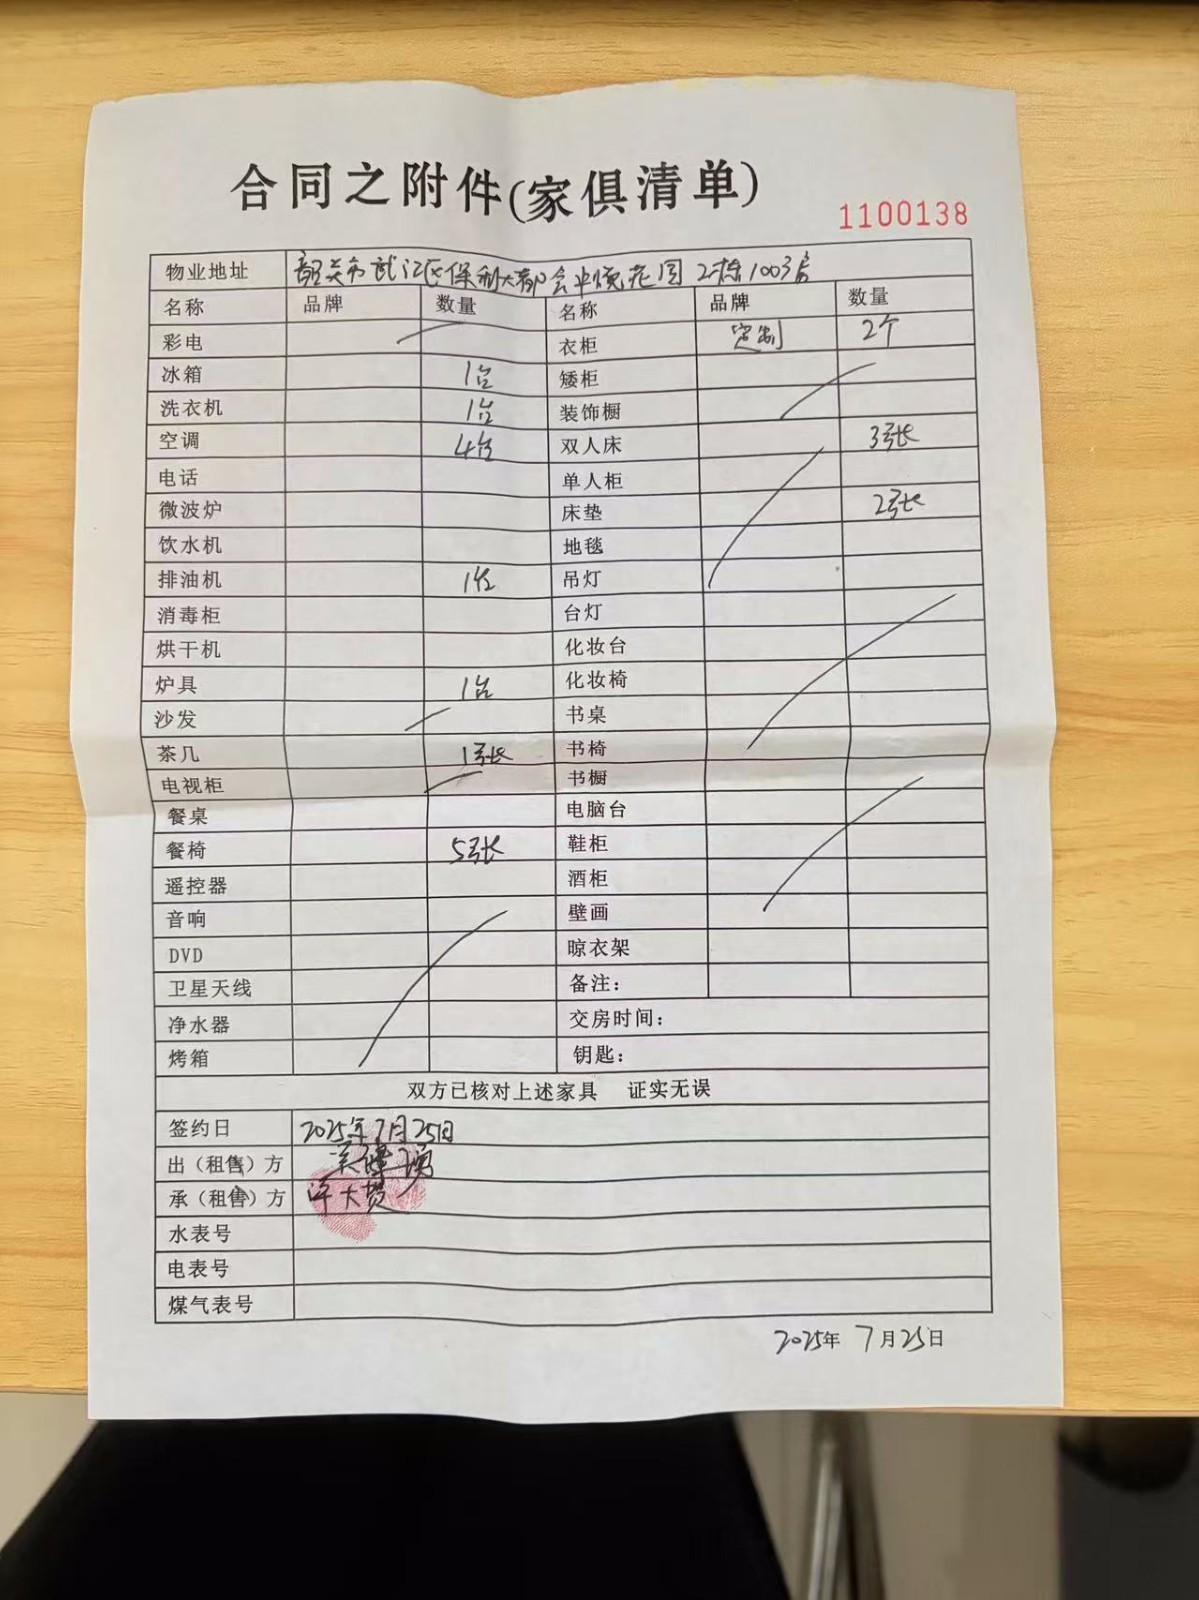 合同之附件(家俱清单)
1100138
物业地址 韶关市武江区保利大都会半岛花园2栋1003房
名称 品牌 数量 名称 品牌 数量
彩电 衣柜 定制 2个
冰箱 1台 矮柜
洗衣机 1台 装饰橱
空调 4台 双人床 3张
电话 单人柜
微波炉 床垫 2张
饮水机 地毯
排油机 1台 吊灯
消毒柜 台灯
烘干机 化妆台
炉具 1台 化妆椅
沙发 书桌
茶几 1张 书椅
电视柜 书橱
餐桌 电脑台
餐椅 5张 鞋柜
遥控器 酒柜
音响 壁画
DVD 晾衣架
卫星天线 备注：
净水器 交房时间：
烤箱 钥匙：
双方已核对上述家具 证实无误
签约日 2025年7月25日
出（租售）方
承（租售）方
水表号
电表号
煤气表号
2025年7月25日